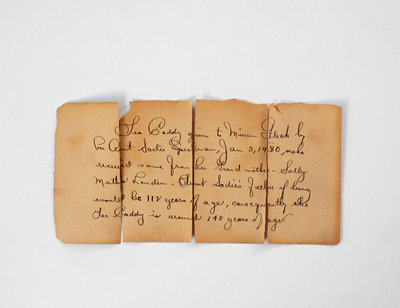 Tea Caddy given to Miriam by
her Aunt Sadie Jan 3, 1930, who
received same from her Grand mother - Sally
Mather - Aunt Sadie's Father if living
would be 112 years of age, consequently the
Tea Caddy is around 140 years of age.